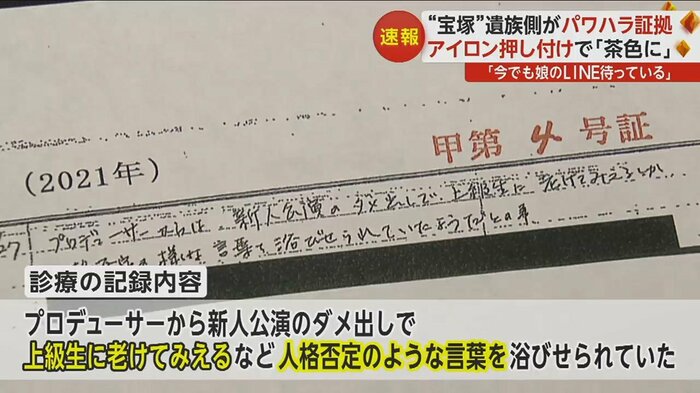 速報
“宝塚”遺族側がパワハラ証拠
アイロン押し付けで「茶色に」
「今でも娘のLINE待っている」
甲第4号証
(2021年)
27
プロデューサーからは 新人公演のダメ出しで、上級生に老けてみえるとか
言葉を浴びせられていたようだとの事
診療の記録内容
プロデューサーから新人公演のダメ出しで
上級生に老けてみえるなど人格否定のような言葉を浴びせられていた